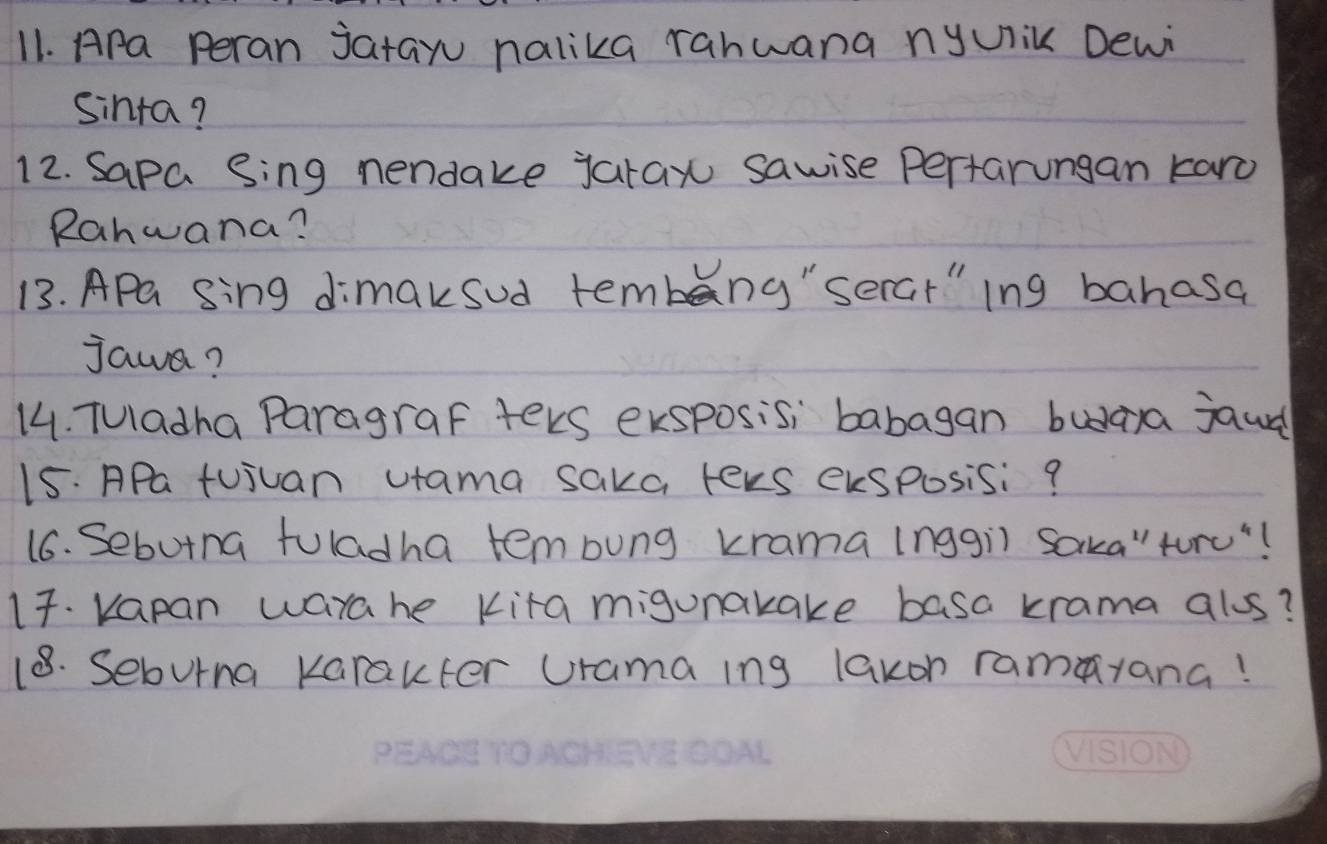 11. Apa Peran Jatayu nalika rahwana nyulik Dewi
Sinta?
12. Sapa Sing nendake Jatayu sawise Pertarungan karo
Rahwana?
13. Apa sing dimaksud tembung "serat" ing bahasa
Jawa?
14. Tuladha Paragraf teks eksposisi babagan budaya Jawa
15. Apa tujuan utama saka teks eksposisi ?
16. Sebutna tuladha tembung krama inggil saka "turu"!
17. Kapan wayahe kita migunakake basa krama alus?
18. Sebutna karakter utama ing lakon ramayana!
PEACE TO ACHIEVE GOAL
VISION